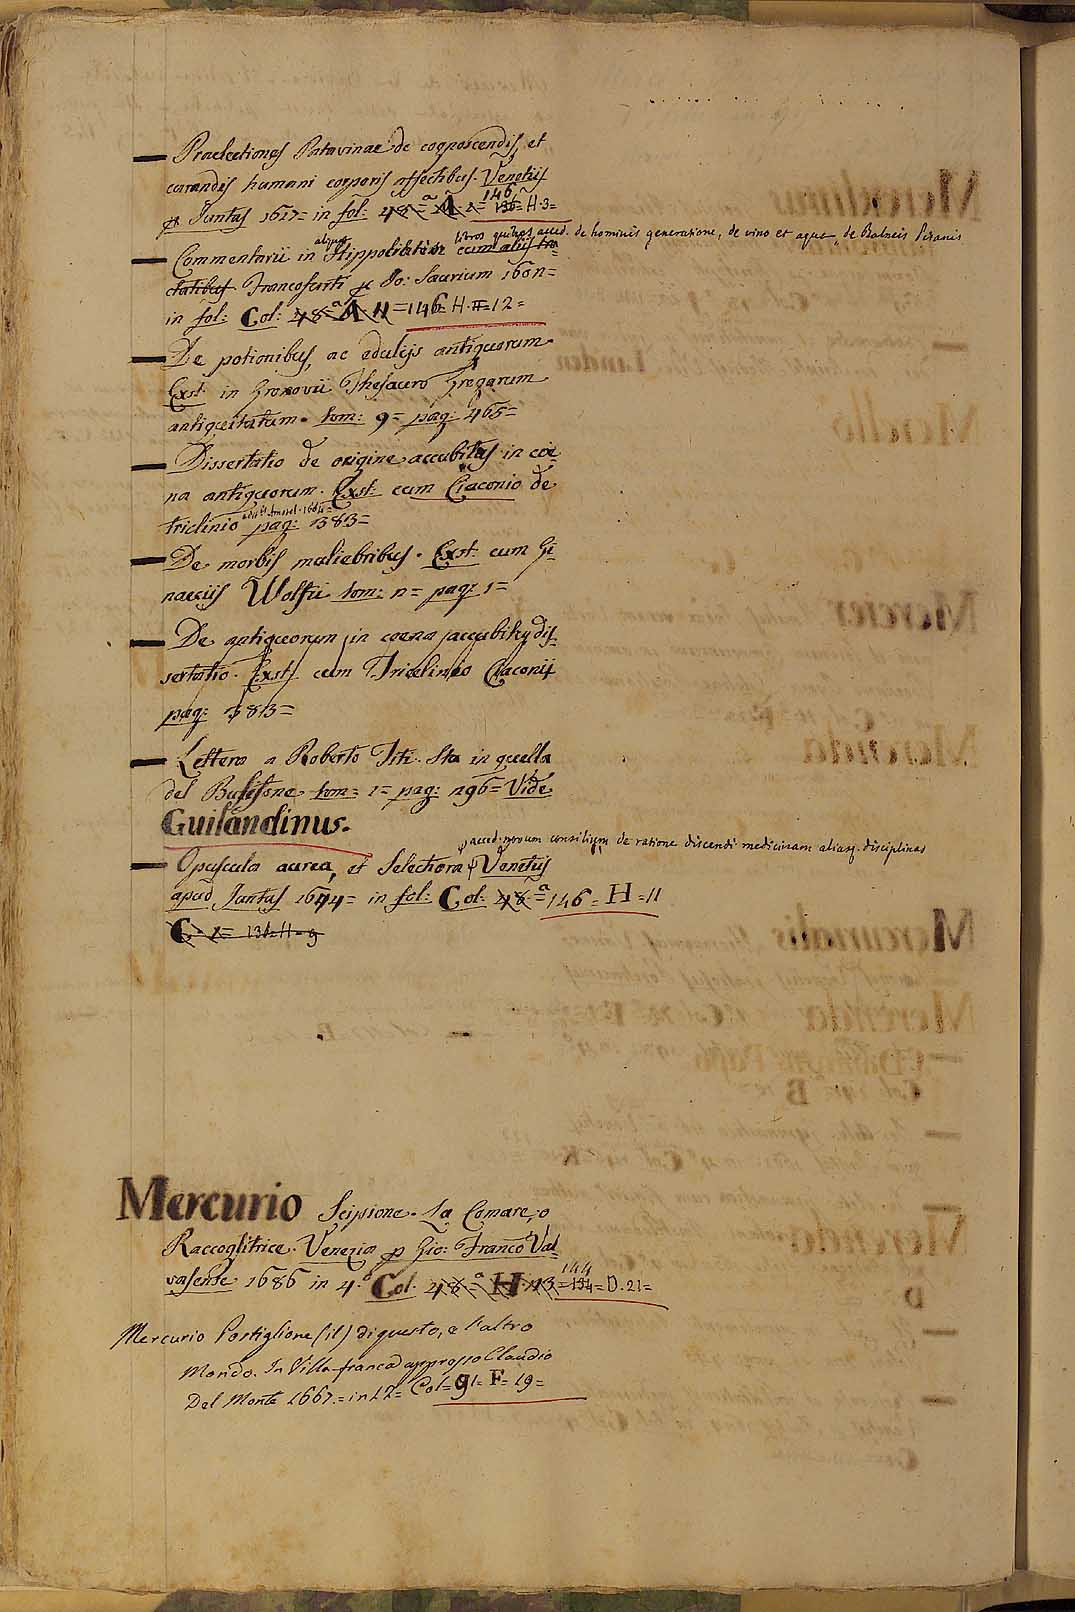 Praelectiones Patavinae de cognoscendis, et
curandis humani corporis affectibus. Venetiis
146
Juntas 1617= in fol: 48=a A 2= 136= H·3=
libros quibus acced. de hominis generatione, de vino et aqua, de Balneis Pisanis
aliquos
Commentarii in Hippocratem cum aliis tra=
ctatibus Francofurti Jo: Saurium 160
in fol: Col: 48=a A 11=146= H·=12=
De potionibus, ac eduliis antiquorum
Exst: in Gronovii Thesauro Gregarum
antiquitatum. tom: 9= pag: 465=
Dissertatio de origine accubitus in coe
na antiquorum. Exst: cum Ciaconio de
edit. Amstel. 1664=
triclinio pag: 383=
De morbis muliebribus. Exst: cum Gi
naeciis Wolfii tom: pag: 1=
De antiquorum in coena accubitu dis
sertatio. Exst: cum Triclinio Ciaconii
pag: 383=
Lettera a Roberto Titi. Sta in quella
del Bulifone tom= 1= pag: 296= Vide
Guilandinus.
acced. novum consilium de ratione discendi medicinam aliasq. disciplinas
Opuscula aurea, et selectiora Venetiis
apud Juntas 1644= in fol: Col: 48=a=146= H=11
C= 2= 136=H=9
Mercurio Scipione. La Comare, o
Raccoglitrice. Venezia p Gio: Franco Val
144
vasense 1686 in 4.o Col. 48=a H 13=134=D.21=
Mercurio Postiglione (il) di questo, e l'altro
Mondo. In Villa-franca appresso Claudio
Del Monte 1667.= in 12= Col= 91= F= 19=